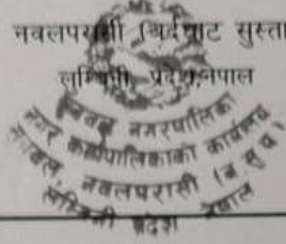 नवलपरासी बर्दघाट सुस्ता
लुम्बिनी प्रदेश,नेपाल
सुनवल नगरपालिका
नगर कार्यपालिकाको कार्यालय
सुनवल, नवलपरासी (ब.सु.प.)
लुम्बिनी प्रदेश नेपाल